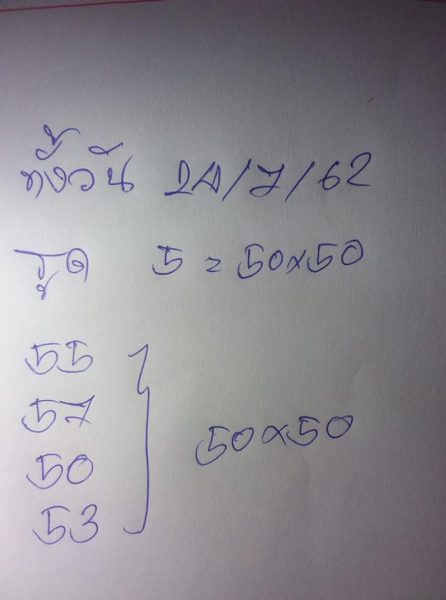 ทั้งวัน 24/7/62
รูด 5 = 50x50
55
57
50
53
50x50